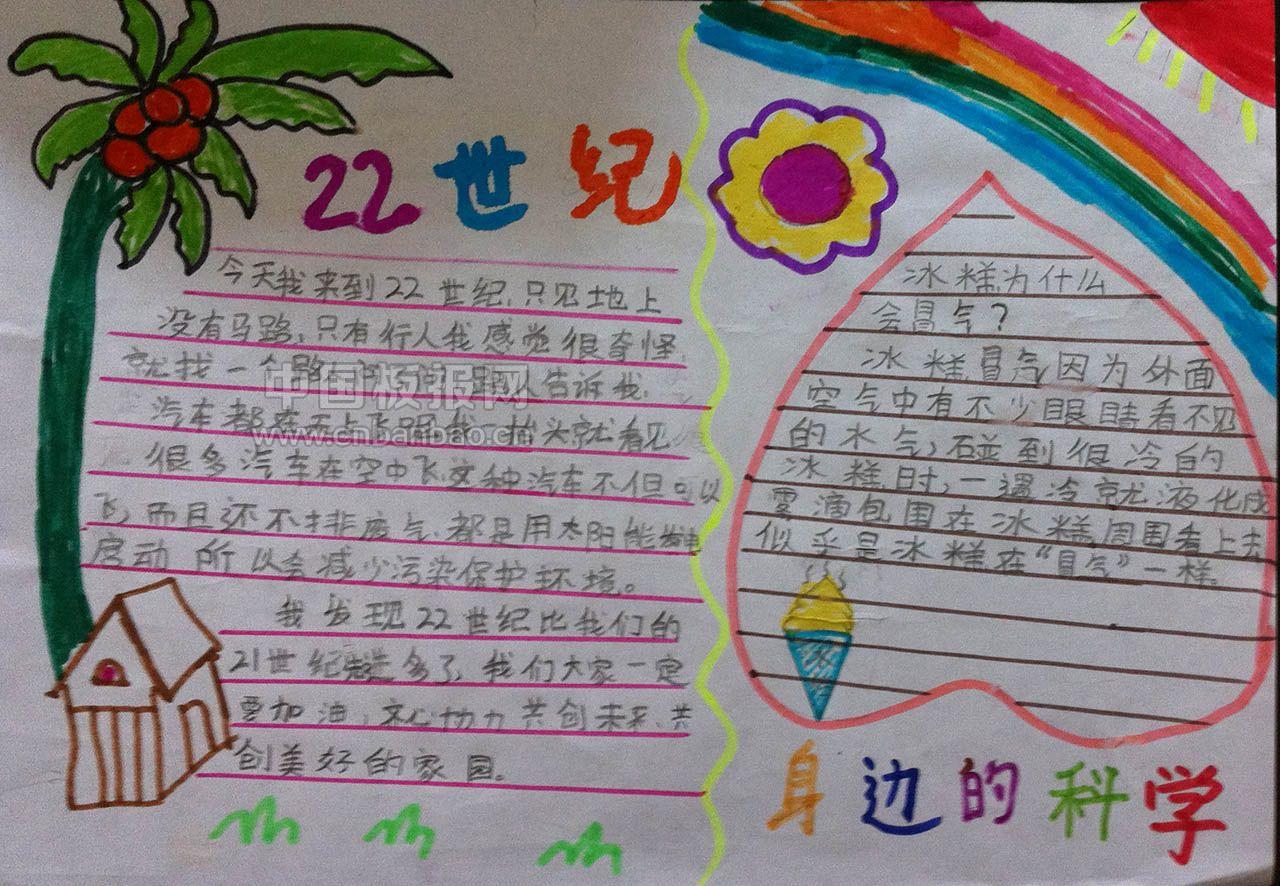 22世纪
今天我来到22世纪,只见地上
没有马路,只有行人我感觉很奇怪,
就找一个路 路人告诉我,
汽车都在天上飞 我一抬头就看见
很多汽车在空中飞,这种汽车不但可以
飞,而且还不排废气,都是用太阳能发电
启动 所以会减少污染保护环境。
我发现22世纪比我们的
21世纪 多了,我们大家一定
要加油, 心协力 共创未来,共
创美好的家园。
中国板报网
www.cnbanbao.cn
冰糕为什么
会冒气?
冰糕冒气因为外面
空气中有不少眼睛看不见
的水气,碰到很冷的
冰糕时,一遇冷就液化成
雾滴包围在冰糕周围看上去
似乎是冰糕在“冒气”一样。
身边的科学